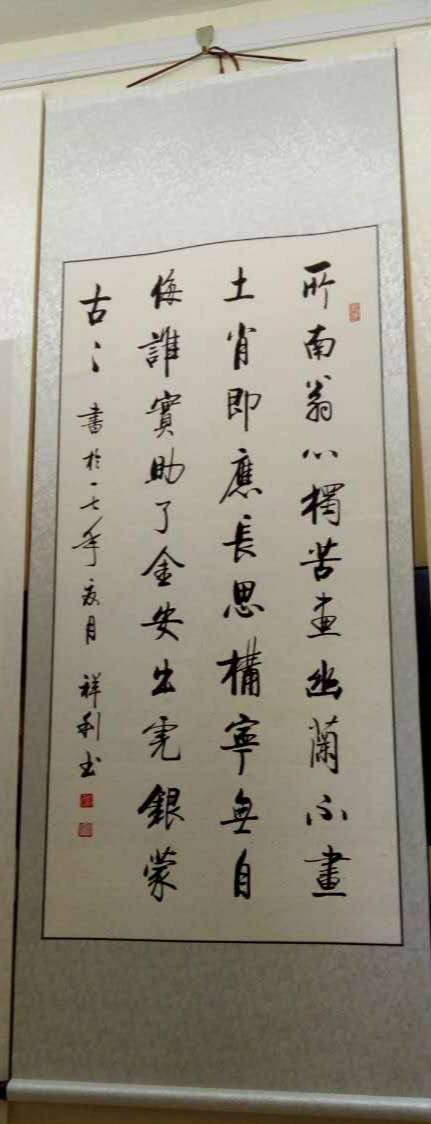 所南翁心獨苦畫幽蘭不畫
土肖即應長思構寧無自
侮誰實助了金安出完銀蒙
古〻 書於一七年夏月 祥利书